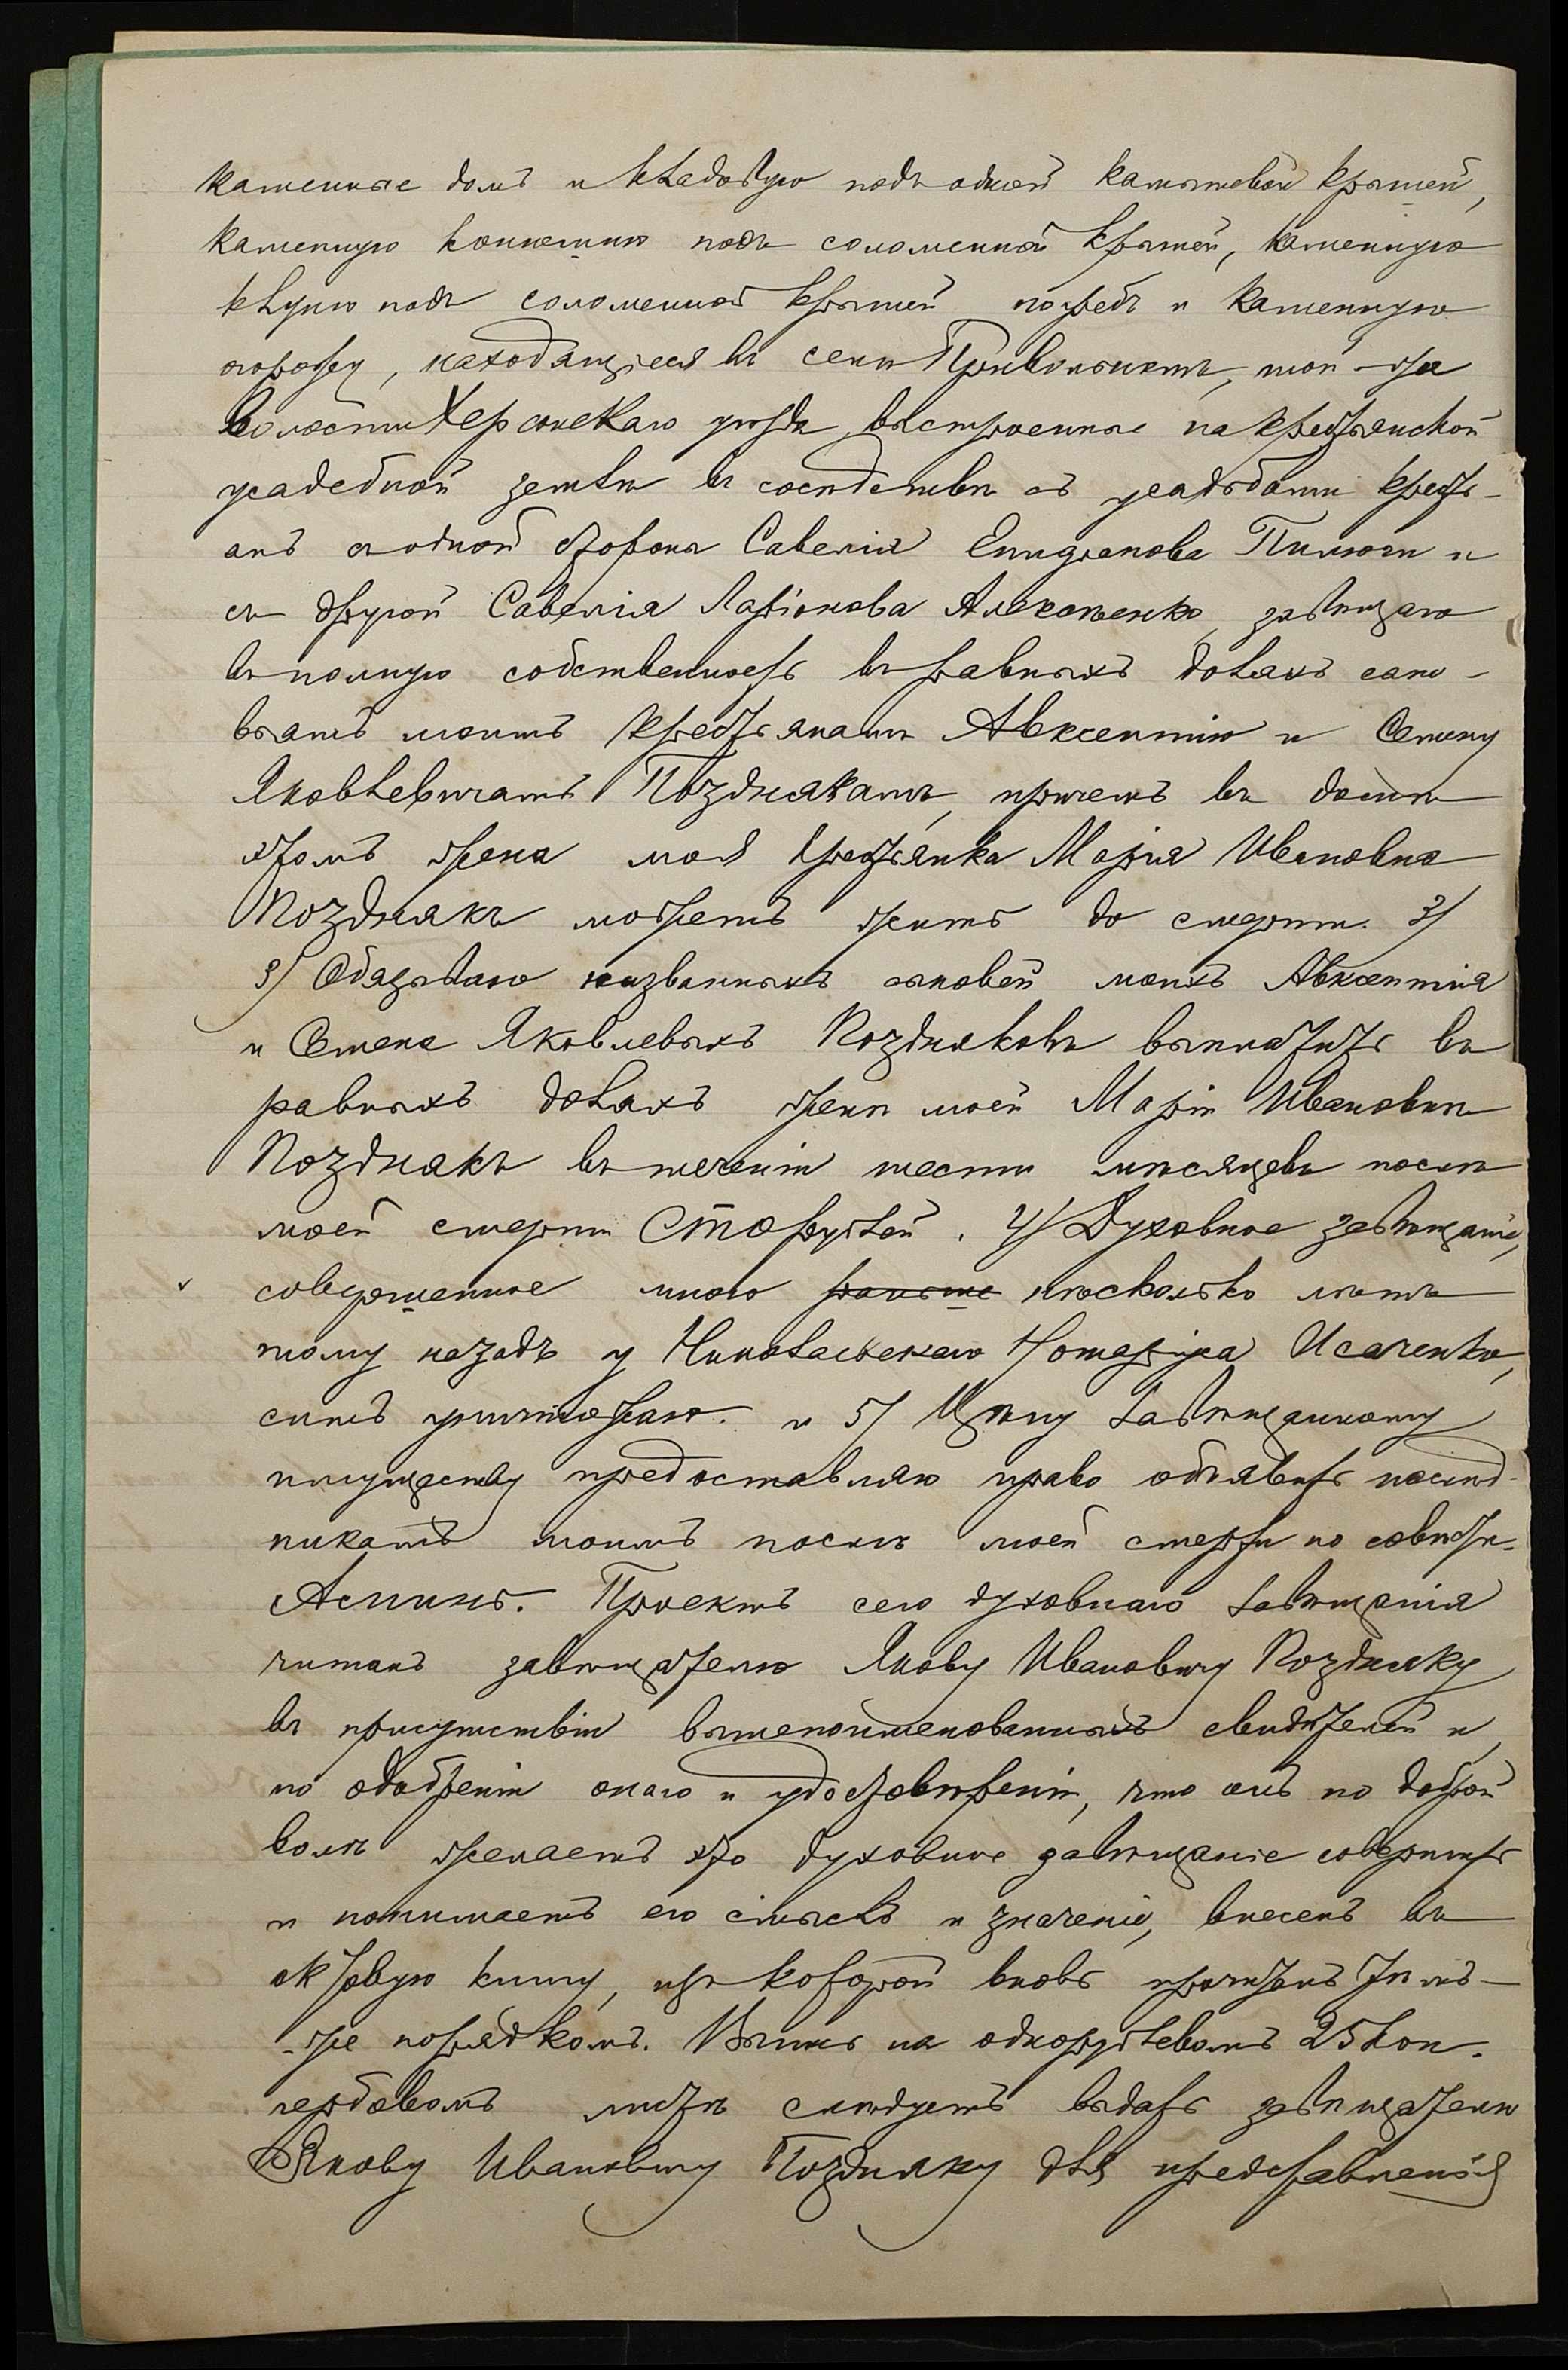 каменные домъ и кладовую подъ одной камышевой крышей,
каменную конюшню подъ соломенной крышей, каменную
клуню подъ соломенной крышей погребъ и каменную
огорожу, находящіеся въ селѣ Привольномъ, той-же
волости Херсонскаго уѣзда, выстроенные на крестьянской
усадебной землѣ въ сосѣдствѣ съ усадьбами кресть-
янъ съ одной стороны Савелія Пилюги и
съ другой Савелія Ларіонова завѣщаю
въ полную собственность въ равныхъ доляхъ сыно-
вьямъ моимъ крестьянамъ Авксентію и Семену
Яковлевичамъ Позднякамъ, причемъ въ домѣ
этомъ жена моя крестьянка Марія Ивановна
Позднякъ можетъ жить до смерти. 3/
3/ Обязываю названныхъ сыновей моихъ Авксентія
и Семена Яковлевыхъ Поздняковъ выплатить въ
равныхъ доляхъ женѣ моей Маріи Ивановнѣ
Позднякъ въ теченіи шести мѣсяцевъ послѣ
моей смерти Сто рублей. 4/ Духовное завѣщаніе,
совершенное мною раньше нѣсколько лѣтъ
тому назадъ у Николаевскаго Нотаріуса Исаченко,
симъ уничтожаю. и 5/ Цѣну завѣщанному
имуществу предоставляю право объявить наслѣд-
никамъ моимъ послѣ моей смерти по совѣсти.
Аминь. Проектъ сего духовнаго завѣщанія
читанъ завѣщателю Якову Ивановичу Поздняку
въ присутствіи вышепоименованныхъ свидѣтелей и,
по одобреніи онаго и удостовѣреніи, что онъ по доброй
волѣ желаетъ это духовное завѣщаніе совершить
и понимаетъ его смыслъ и значеніе, внесенъ въ
актовую книгу, изъ которой вновь прочитанъ тѣмъ-
-же порядкомъ. Выпись на однорублевомъ 25 коп.
гербовомъ листѣ слѣдуетъ выдать завѣщателю
Якову Ивановичу Поздняку для представленія